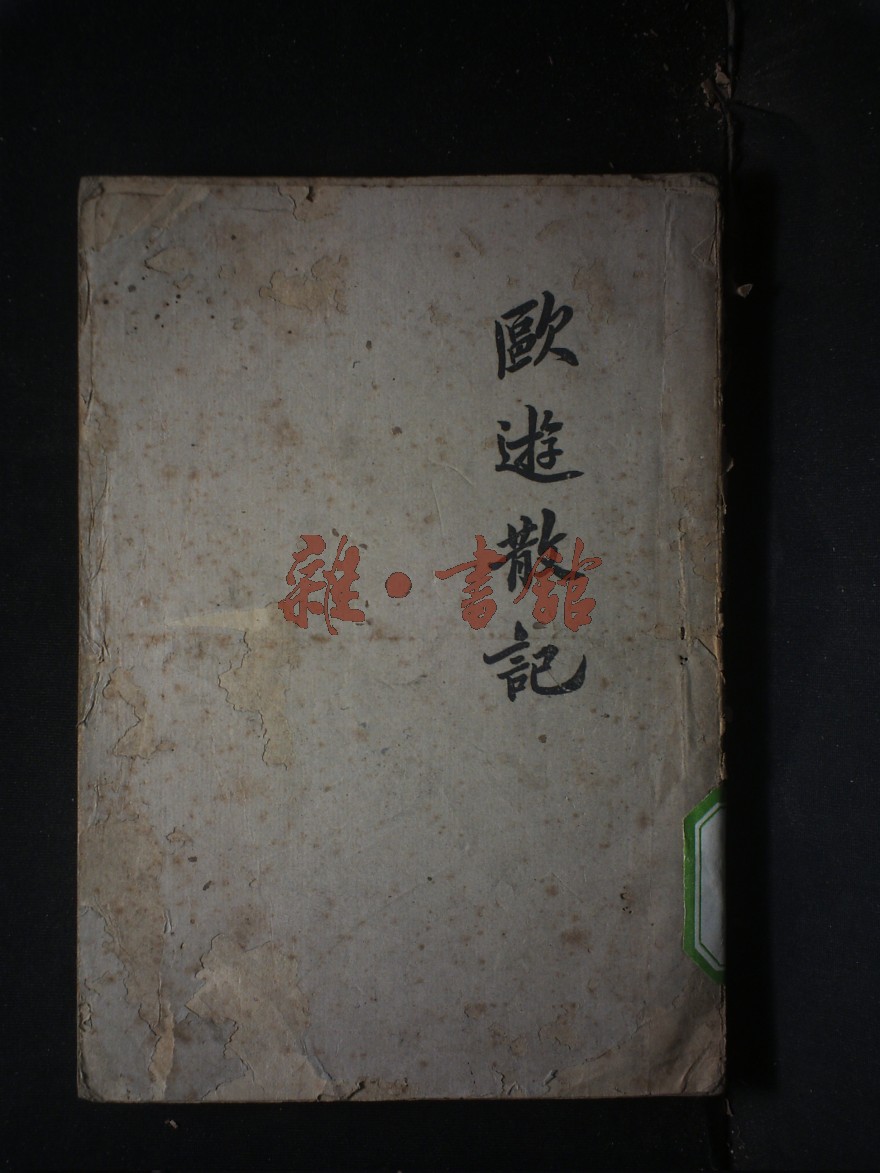 歐遊散記
雜·書館